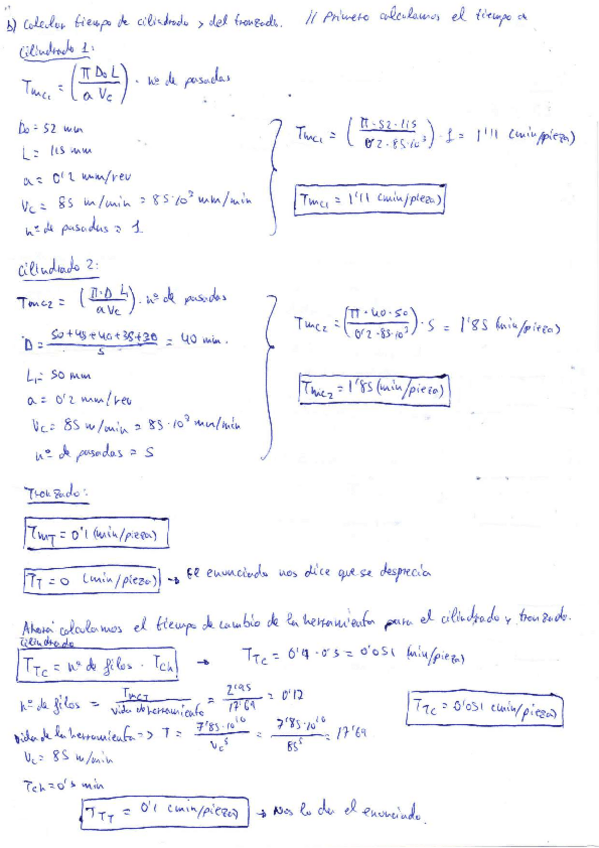 b) Calcular tiempo de cilindrado y del tronzado. // Primero calculamos el tiempo de
Cilindrado 1:
Tmc1 = (π D0 L / a Vc) · nº de pasadas
D0 = 52 mm
L = 115 mm
a = 0'2 mm/rev
Vc = 85 m/min = 85·10³ mm/min
nº de pasadas = 1
Tmc1 = (π·52·115 / 0'2·85·10³) · 1 = 1'11 (min/pieza)
Tmc1 = 1'11 (min/pieza)
Cilindrado 2:
Tmc2 = (π·D L1 / a Vc) · nº de pasadas
D = 50+45+40+35+30 / 5 = 40 mm.
L1 = 50 mm
a = 0'2 mm/rev
Vc = 85 m/min = 85·10³ mm/min
nº de pasadas = 5
Tmc2 = (π·40·50 / 0'2·85·10³) · 5 = 1'85 (min/pieza)
Tmc2 = 1'85 (min/pieza)
Tronzado:
TmT = 0'1 (min/pieza)
TT = 0 (min/pieza) → El enunciado nos dice que se desprecia
Ahora calculamos el tiempo de cambio de la herramienta para el cilindrado y tronzado.
Cilindrado
TTC = nº de filos · Tch → TTC = 0'17 · 0'3 = 0'051 (min/pieza)
nº de filos = TmCT / vida de herramienta = 2'95 / 17'69 = 0'17
TTC = 0'051 (min/pieza)
vida de la herramienta => T = 7'85·10¹⁰ / Vc⁵ = 7'85·10¹⁰ / 85⁵ = 17'69
Vc = 85 m/min
Tch = 0'3 min
TTT = 0'1 (min/pieza) → Nos lo da el enunciado.